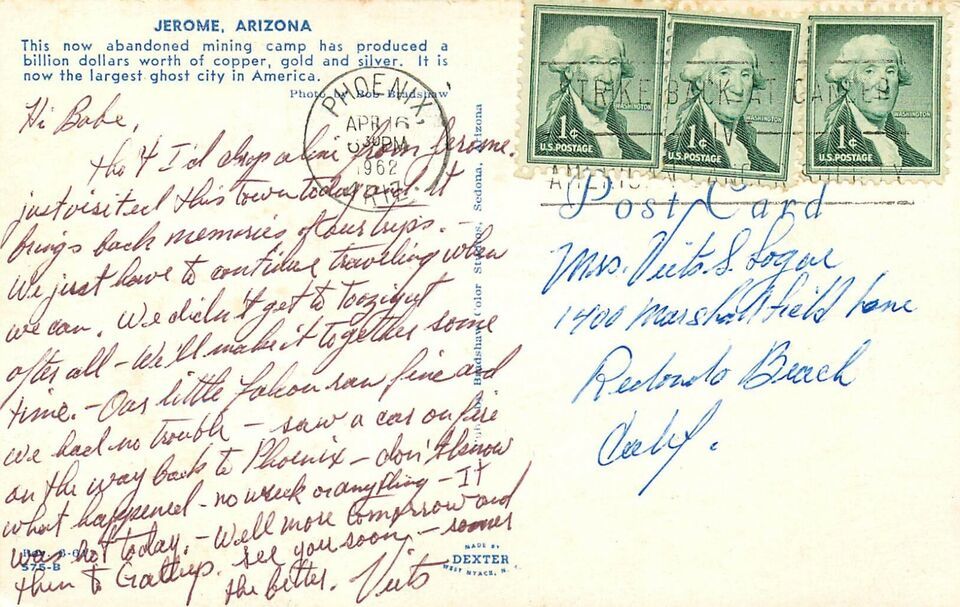 JEROME, ARIZONA
This now abandoned mining camp has produced a
billion dollars worth of copper, gold and silver. It is
now the largest ghost city in America.
Photo by Bob Bradshaw
Hi Babe,
tho't I'd drop a line from Jerome.
just visited this town today and it
brings back memories of our trips. -
We just have to continue traveling when
we can. We didn't get to
after all - We'll make it together some
time. - Our little falcon ran fine and
we had no trouble - saw a car on fire
on the way back to Phoenix - don't know
what happened - no wreck or anything - It
was hot today. - Well more tomorrow and
then to Gallup. See you soon - sooner
the better. Vits
575-B
Bradshaw Color Studios, Sedona, Arizona
MADE BY
DEXTER
WEST NYACK, N.Y.
PHOENIX,
APR 16
630PM
1962
ARIZ.
1¢
U.S. POSTAGE
WASHINGTON
1¢
U.S. POSTAGE
WASHINGTON
1¢
U.S. POSTAGE
WASHINGTON
STRIKE BACK AT CANCER
GIVE
AMERICAN CANCER SOCIETY
Post Card
Mrs. Vits S. Logar
1400 Marshallfield Lane
Redondo Beach
Calif.